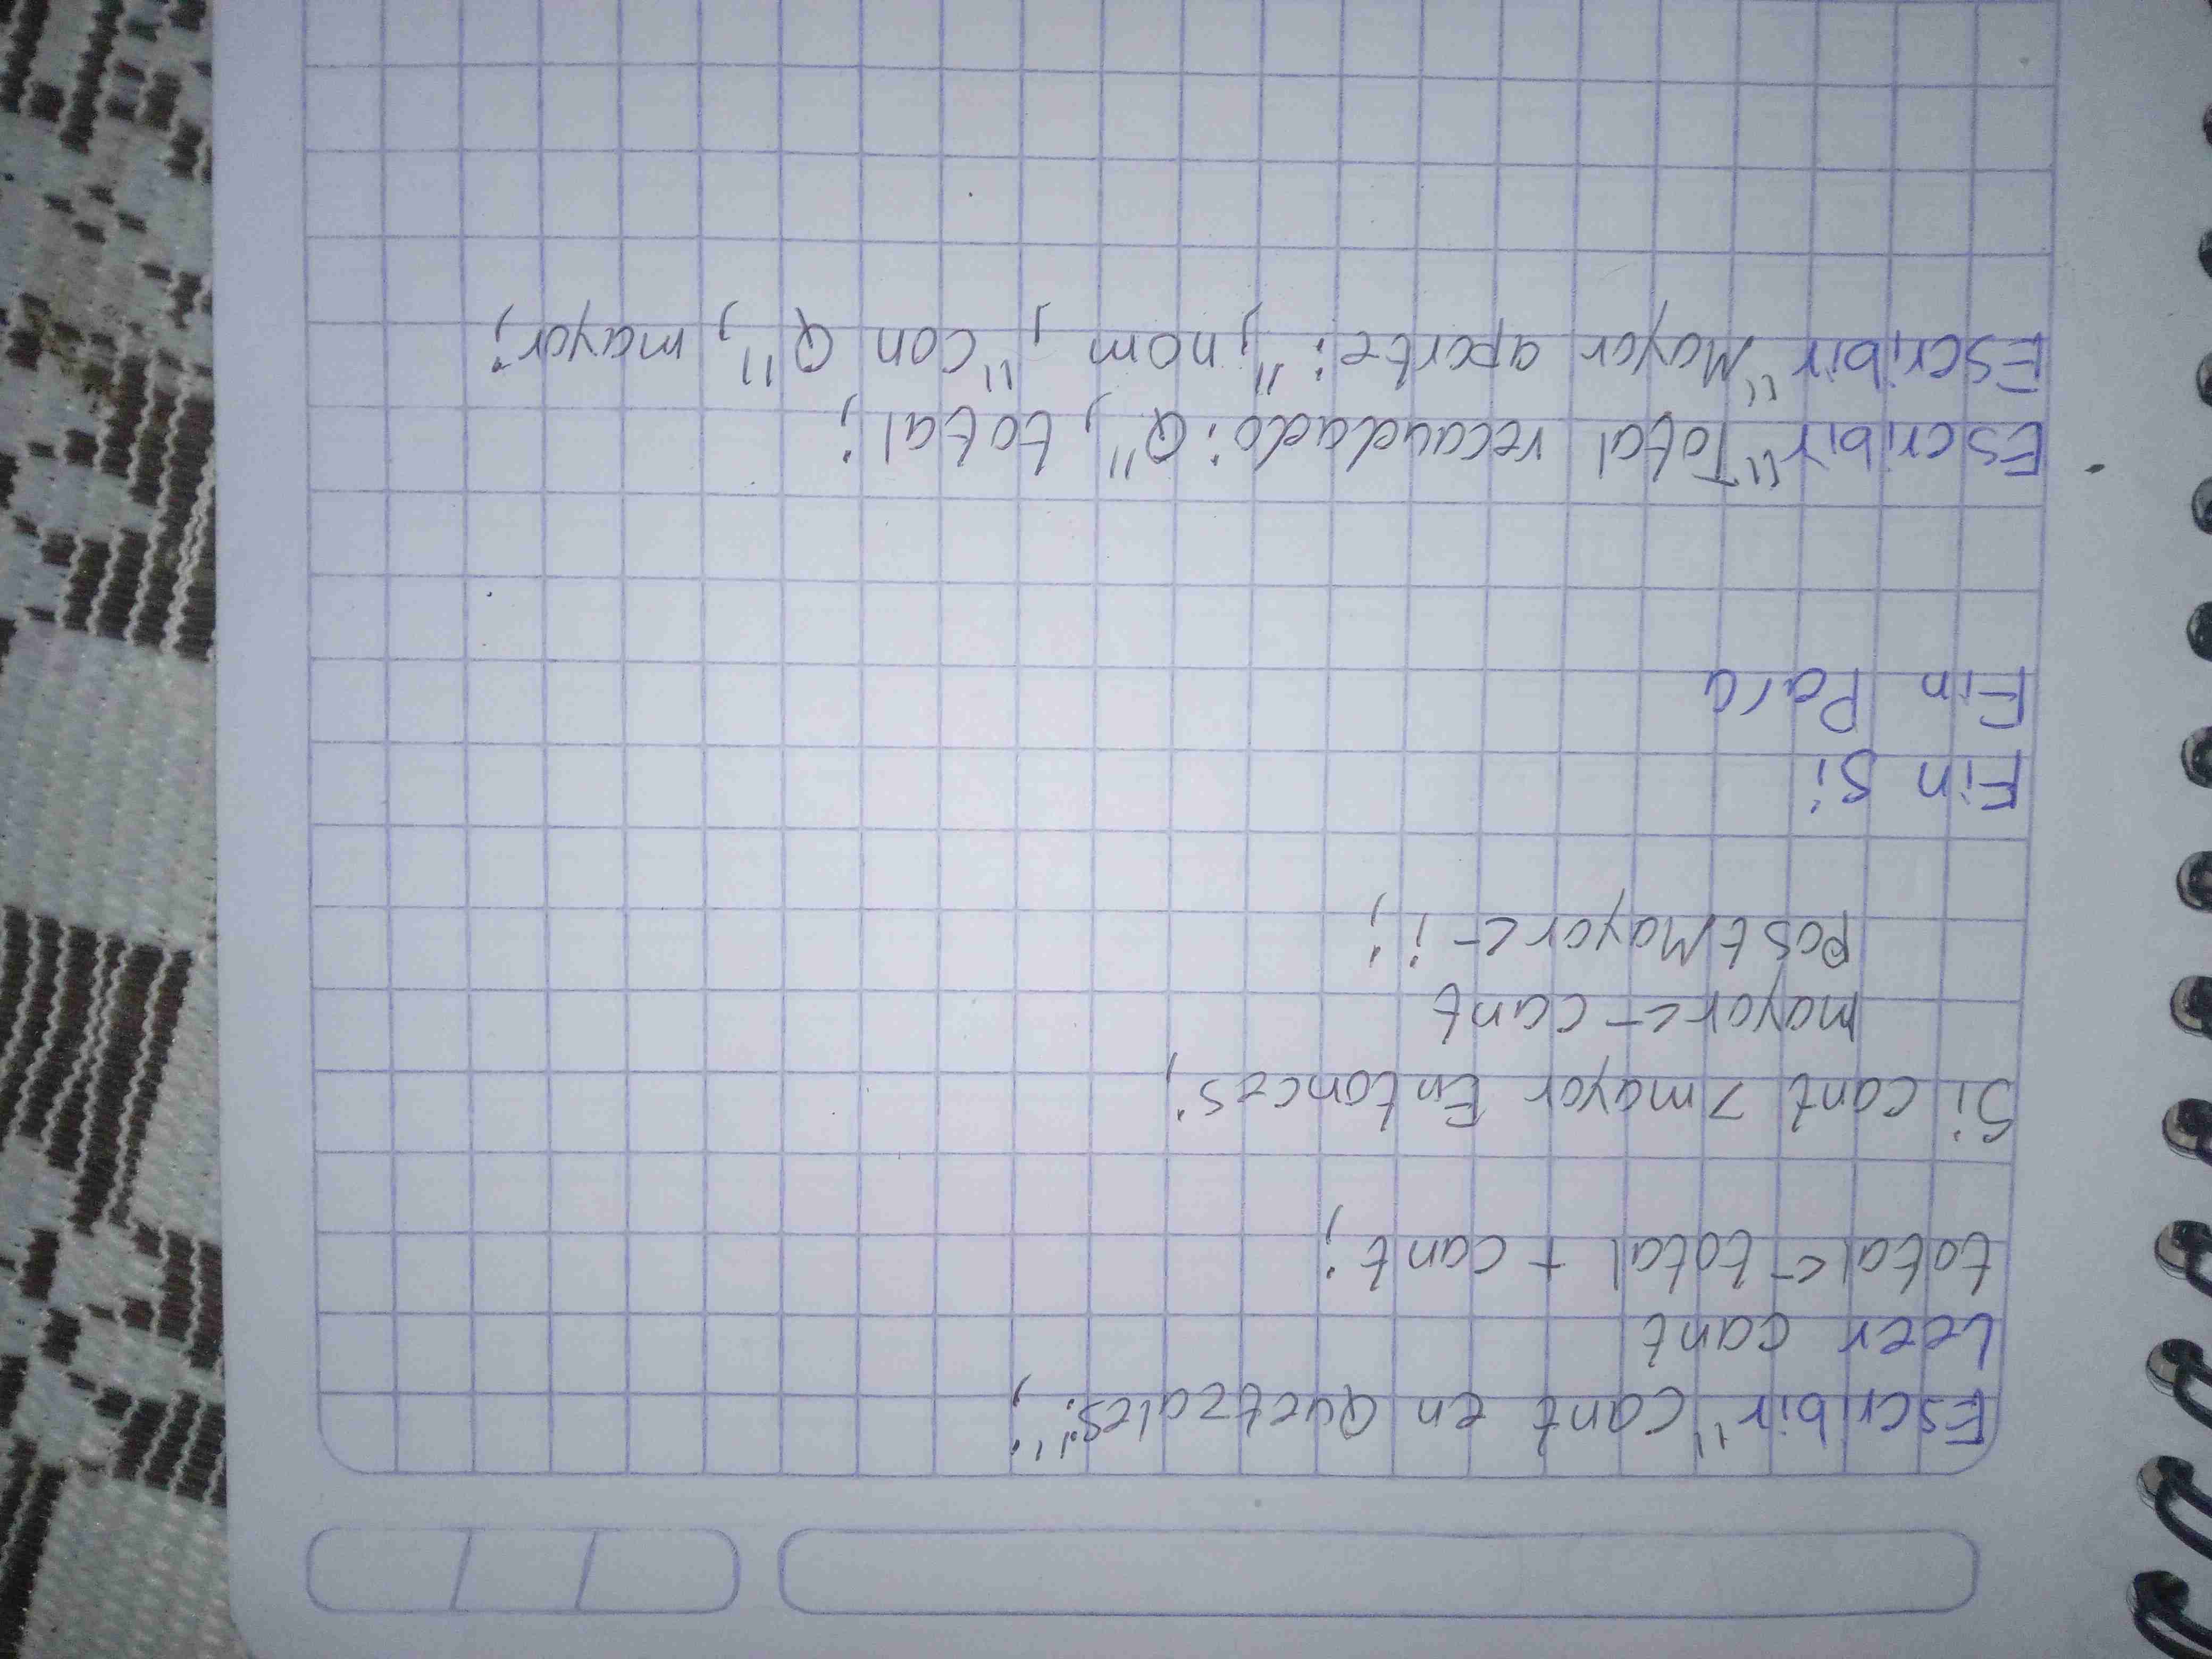 Escribir "cant en Quetzales:";
Leer cant
total <- total + cant;
Si cant > mayor Entonces;
mayor <- cant
PostMayor <- i;
Fin Si
Fin Para
Escribir "Total recaudado: Q", total;
Escribir "Mayor aporte: ", nom, "con Q", mayor;